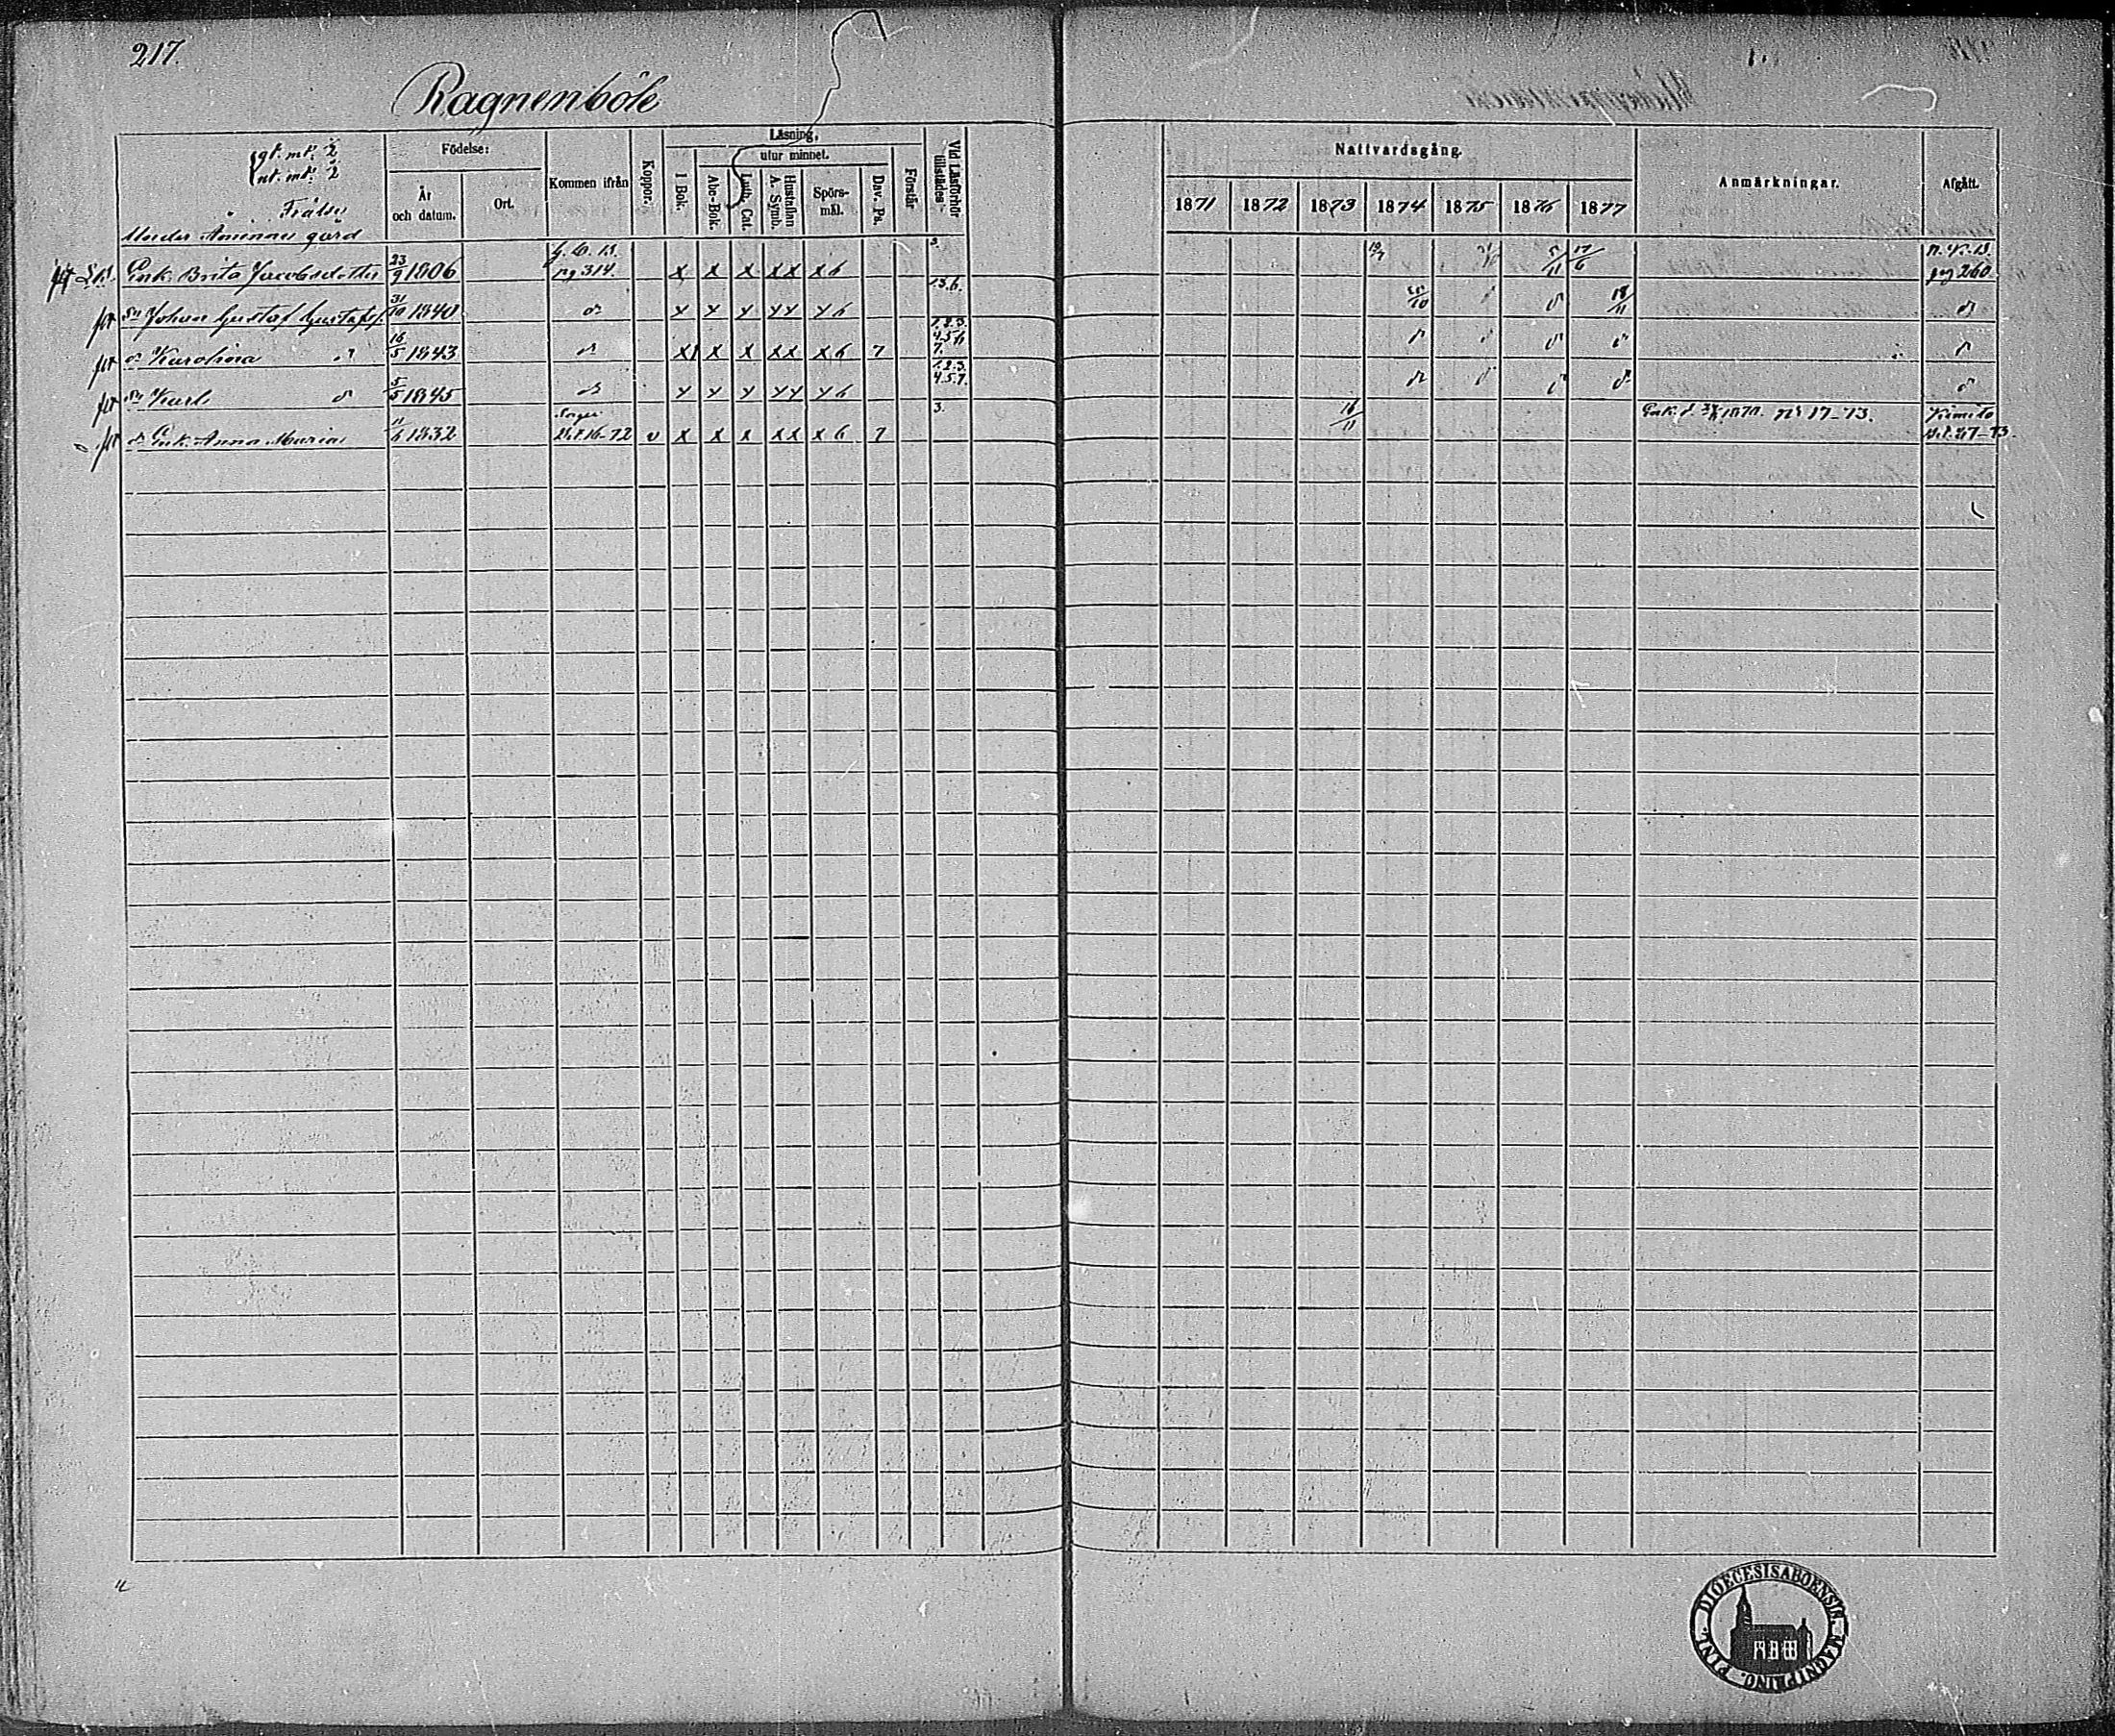 217.
Ragnenböle
gl. mt. 2
nt. mt. 2
Frälse
Under Åminne gård
Födelse:
År och datum.
Ort.
Kommen ifrån
Koppor.
Läsning,
utur minnet.
I Bok.
Abc-Bok.
Luth. Cat.
Hustaflan A. Symb.
Spörsmål.
Dav. Ps.
Förstår
Vid Läsförhör tillstädes
Nattvardsgång.
1871 1872 1873 1874 1875 1876 1877
Anmärkningar.
Afgått.
Enk. Brita Jacobsdotter 23/9 1806 G. C. B. pg 314. x x x x x x 6 3. 5/11 17/6 n. K. B. pg 260
sn Johan Gustaf Gustafss. 31/10 1840 d:o x x x x x x 6 1.3.6. 25/10 d:o 18/11 d:o
dr Karolina d:o 16/5 1843 d:o x x x x x x 6 7 1.2.3. 4.5.6 7. d:o d:o d:o d:o d:o
sn Karl d:o 5/5 1845 d:o x x x x x x 6 1.2.3. 4.5.7. d:o d:o d:o d:o d:o
dr Enk. Anna Maria 11/6 1832 16-72 v x x x x x x 6 7 3. 16/11 Enk. d. 1870. No 17-73. Kimito 27-73.
DIOECESIS ABOENSIS MAGNI PRINC. FINL.